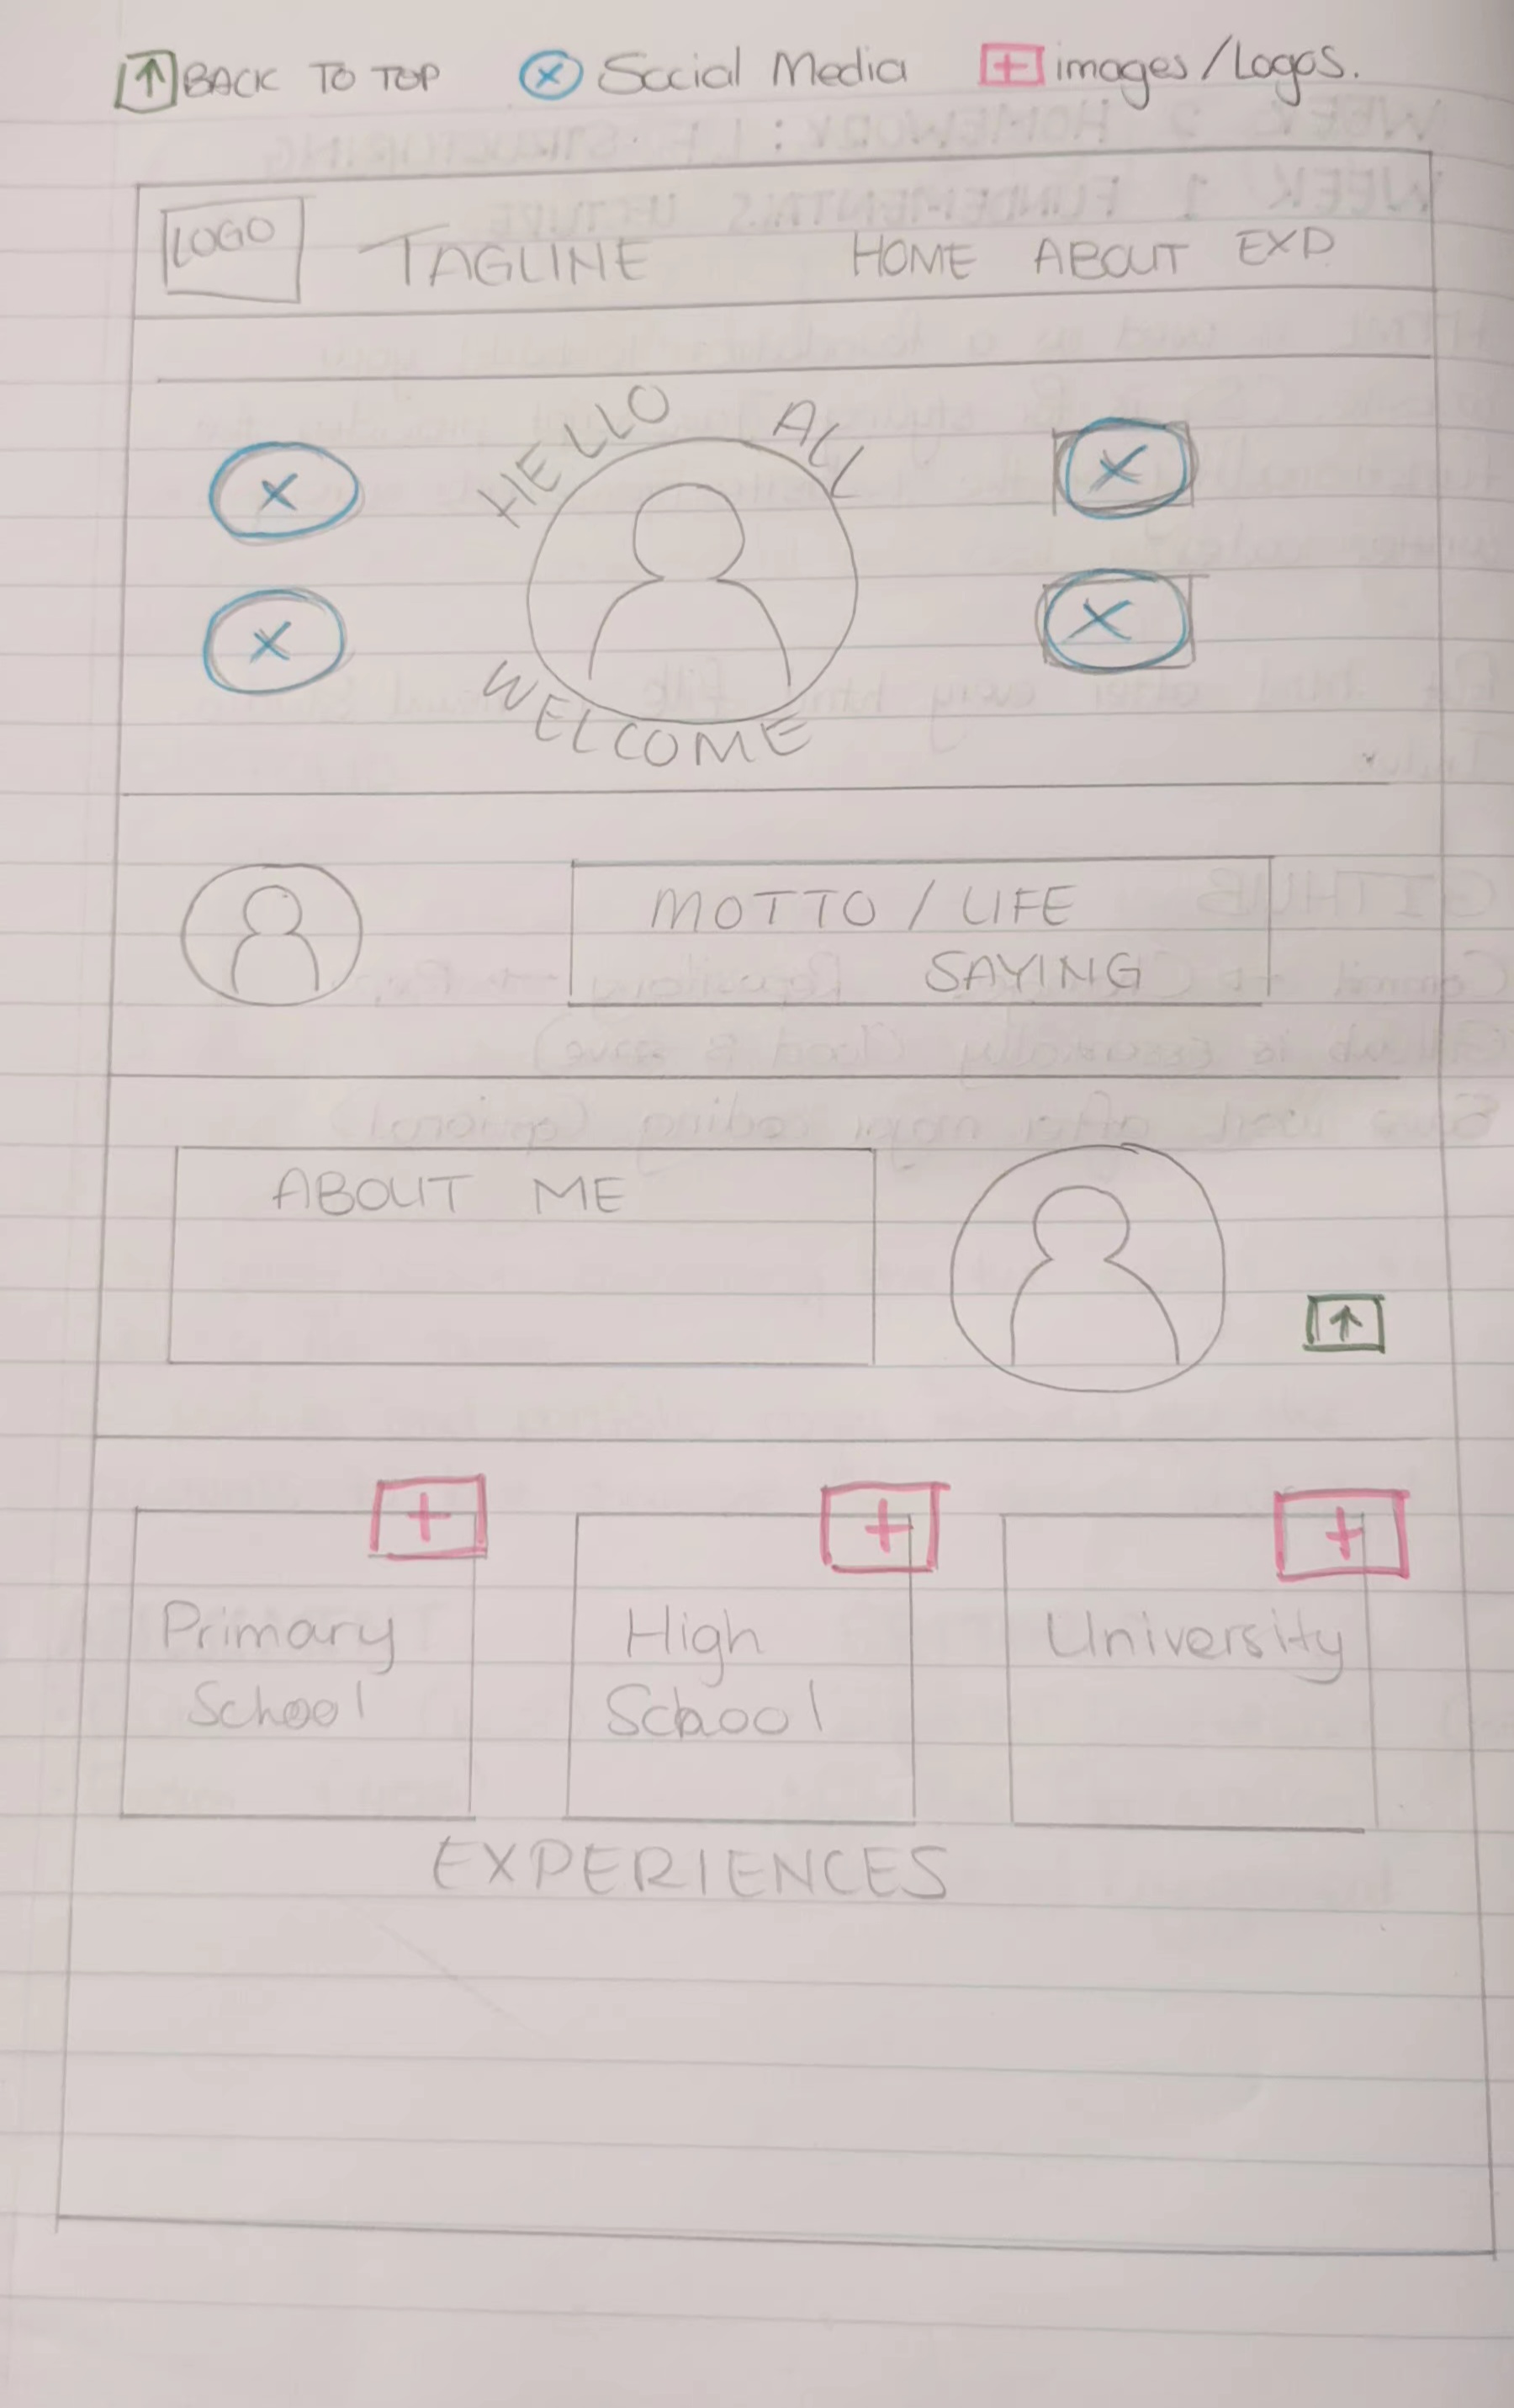 ↑ BACK TO TOP x Social Media + images/Logos.
LOGO TAGLINE HOME ABOUT EXP
HELLO ALL
x x
x x
WELCOME
MOTTO / LIFE
SAYING
ABOUT ME
↑
+ + +
Primary High University
School School
EXPERIENCES